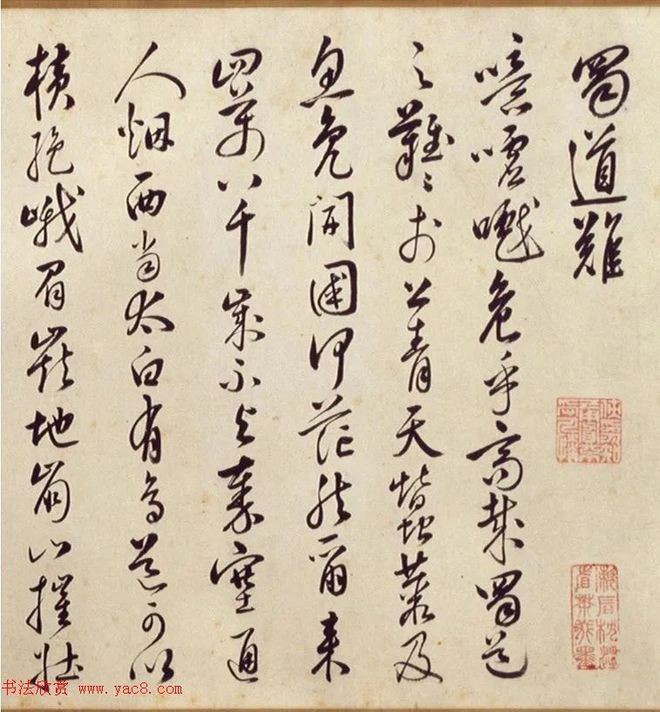 蜀道難
噫嘘嚱危乎高哉蜀道
之難〻於上青天蠶叢及
魚鳧開國何茫然爾来
四萬八千歲不與秦塞通
人烟西當太白有鳥道可以
横絶峨眉巔地崩山摧壯
书法欣赏 www.yac8.com